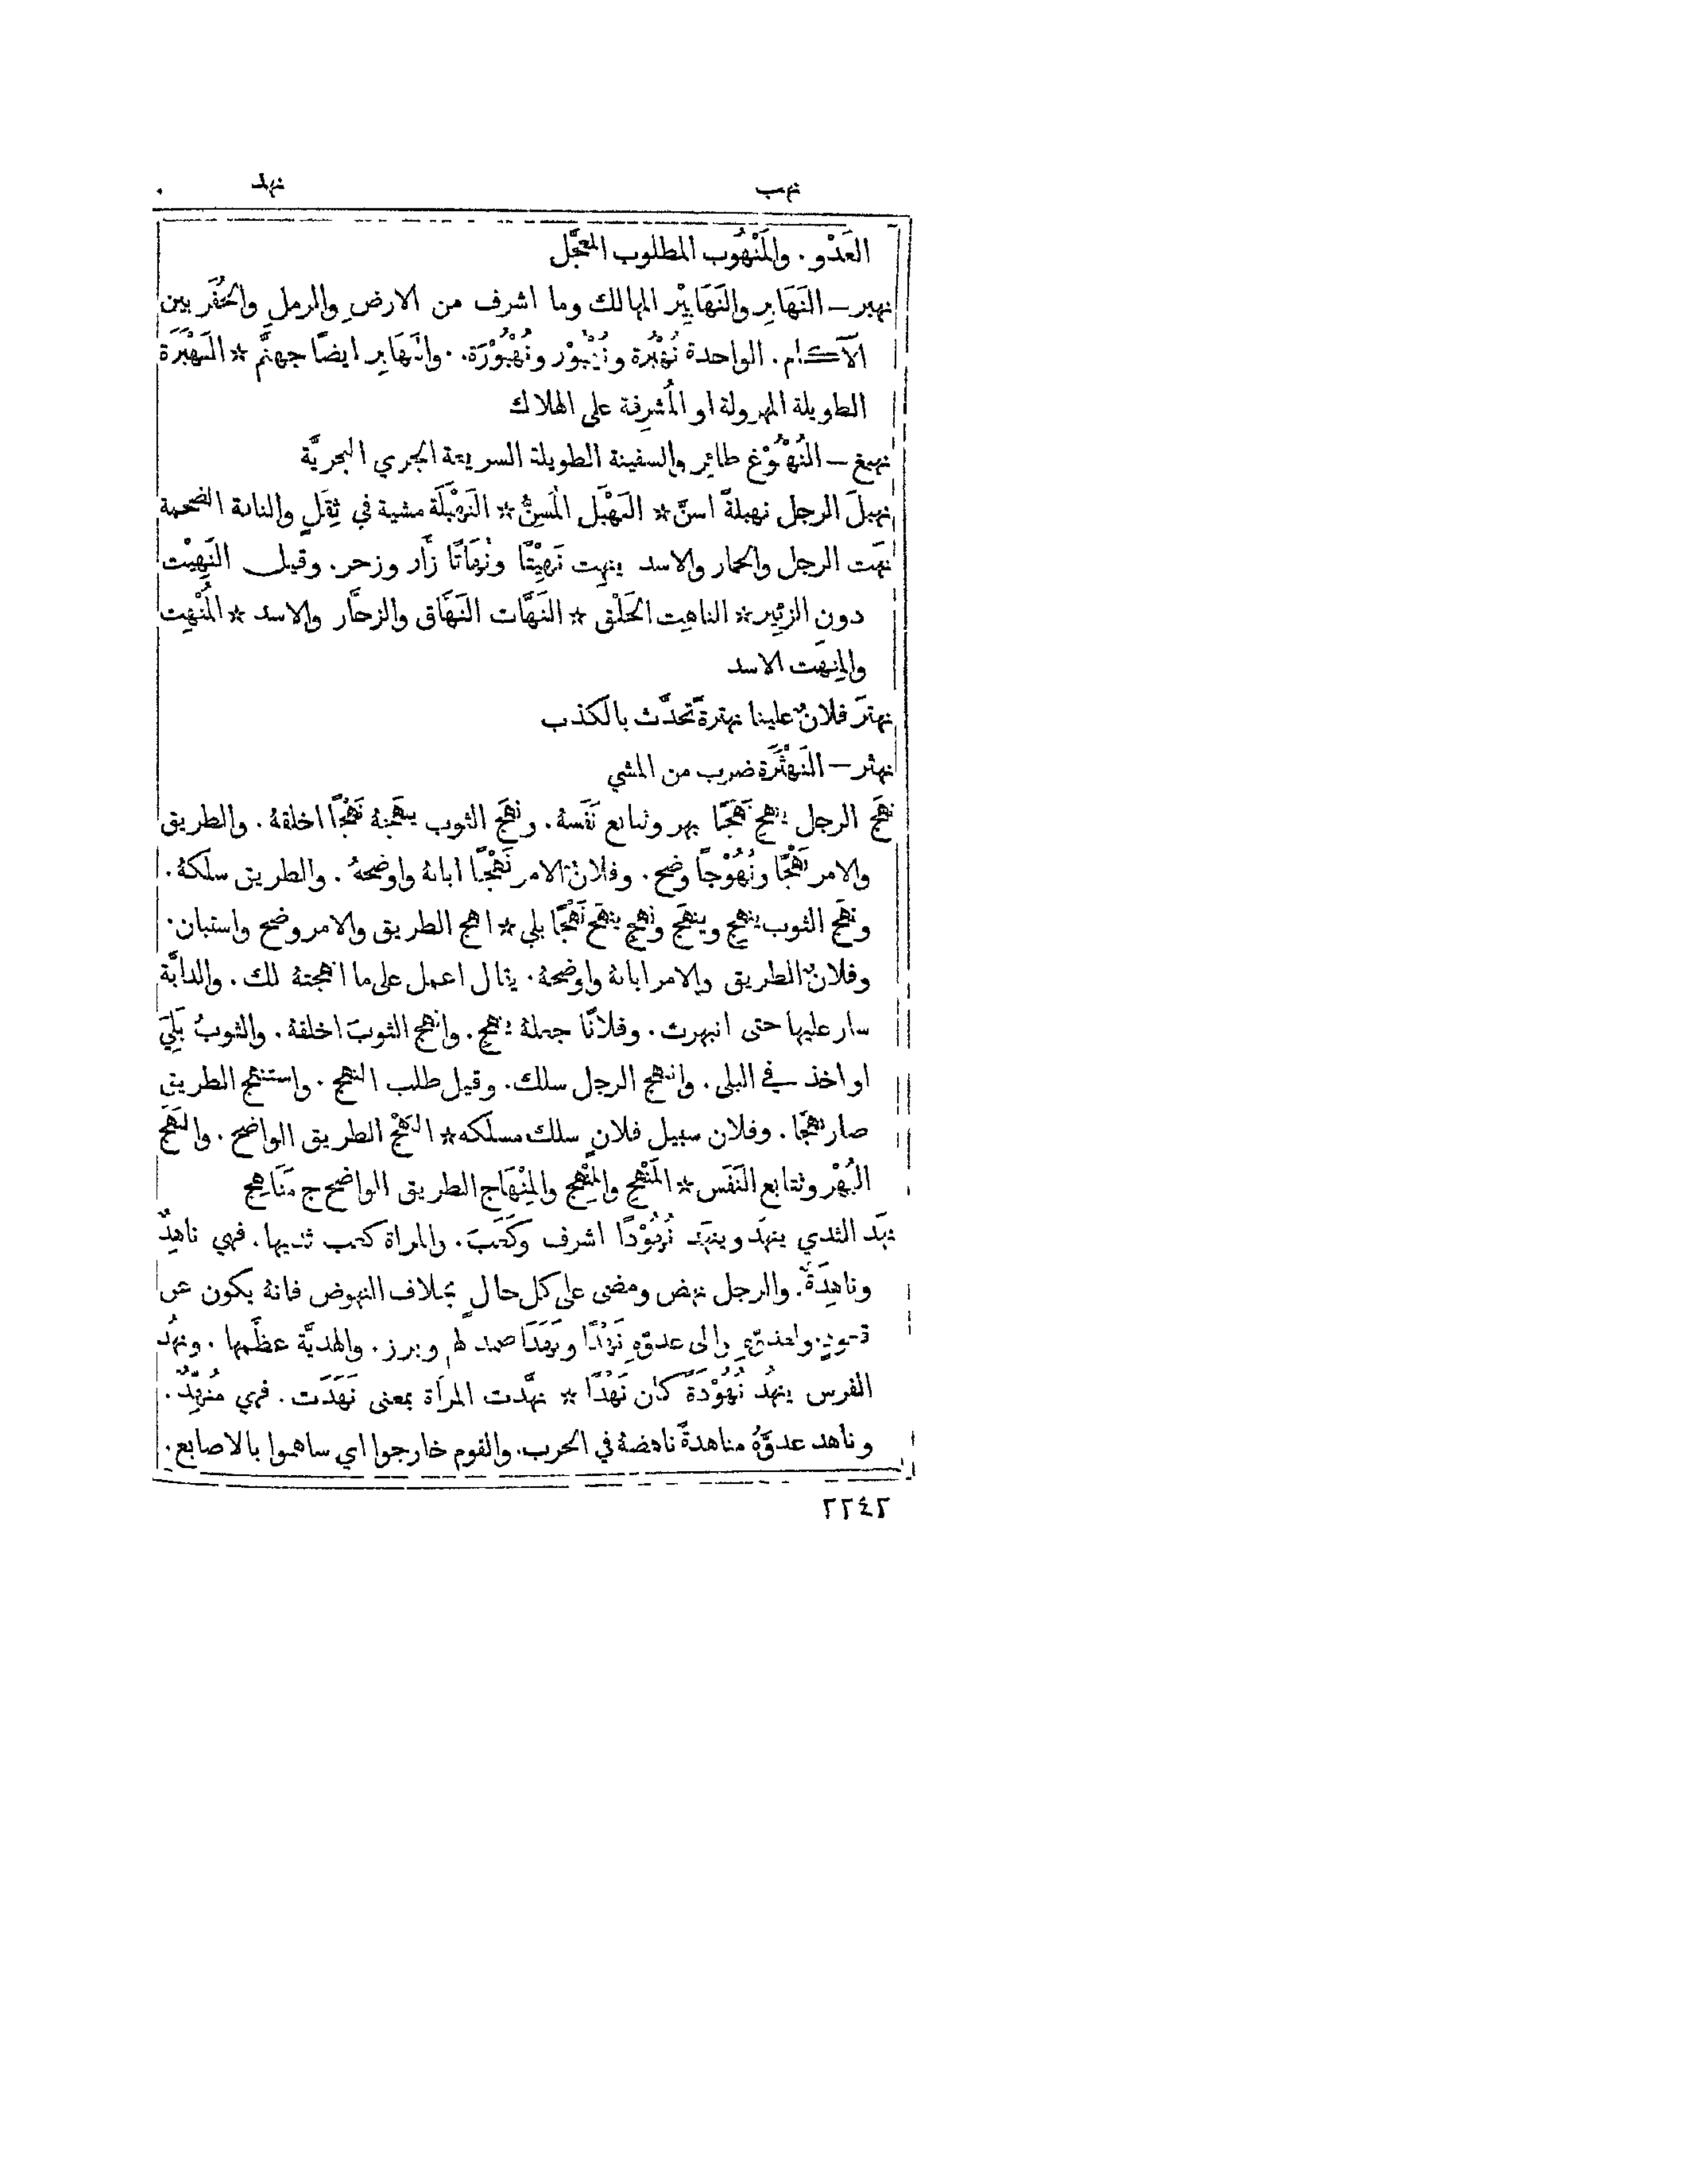 نهب نهد
العَدْو. والمَنْهُوب المطلوب المعجَّل
نهبر — النَهَابِر والنَهَابِيْر المهالك وما اشرف من الارض والرمل والحُفَر بين
الآكام. الواحدة نُهْبُرة ونُهْبُوْر ونُهْبُوْرَة. والنَهَابِر ايضًا جهنَّم * النَهْبَرَة
الطويلة المهزولة او المُشرِفة على الهلاك
نهبغ — النُهْبُوْغ طائِر والسفينة الطويلة السريعة الجري البحريَّة
نهبلَ الرجل نهبلةً اسنَّ * النَهْبَل المُسِنُّ * النَهْبَلَة مشية في ثِقَلٍ والناقة الضخمة
نهَت الرجل والحمار والاسد ينهِت نَهِيْتًا ونُهَاتًا زأَر وزحر. وقيل النَهِيْت
دون الزئِير * الناهِت الحَلْق * النَهَّات النَهَّاق والزحَّار والاسد * المُنْهِت
والمِنهَت الاسد
نهترَ فلانٌ علينا نهترةً تحدَّث بالكذب
نهثر — النَهْثَرَة ضرب من المشي
نهَج الرجل ينهِج نَهَجًا بهر وتتابع نَفَسهُ. ونهَج الثوب ينهَجهُ نَهْجًا اخلقهُ. والطريق
والامر نَهْجًا ونُهُوْجًا وضح. وفلانٌ الامر نَهْجًا ابانهُ واوضحهُ. والطريق سلكهُ.
ونهَج الثوب ينهِج وينهَج ونهِج ينهَج نَهْجًا بلي * انهج الطريق والامر وضح واستبان.
وفلانٌ الطريق والامر ابانهُ واوضحهُ. يقال اعمل على ما انهجتهُ لك. والدابَّة
سار عليها حتى انبهرت. وفلانًا جعلهُ ينهج. وانهج الثوبَ اخلقهُ. والثوبُ بَلِيَ
او اخذ في البلى. وانتهج الرجل سلك. وقيل طلب النهج. واستنهج الطريق
صار نهجًا. وفلان سبيل فلانٍ سلك مسلكه * النَهْج الطريق الواضح. والنَهَج
البُهْر وتتابع النَفَس * المَنْهَج والمِنْهَج والمِنْهَاج الطريق الواضح ج مَنَاهِج
نهَد الثدي ينهَد وينهُد نُهُوْدًا اشرف وكَعَبَ. والمراة كعب ثديها. فهي ناهِدٌ
وناهِدَةٌ. والرجل نهض ومضى على كل حالٍ بخلاف النهوض فانهُ يكون عن
قعودٍ. ولعدوّهِ والى عدوّهِ نَهْدًا ونَهَدًا صمد لهم وبرز. والهديَّة عظَّمها. ونهُد
الفرس ينهُد نُهُوْدَةً كان نَهْدًا * نهَّدت المرأَة بمعنى نَهَدَت. فهي مُنَهِّدٌ.
وناهد عدوَّهُ مناهدةً ناهضهُ في الحرب. والقوم خارجوا اي ساهموا بالاصابع.
٢٢٤٢